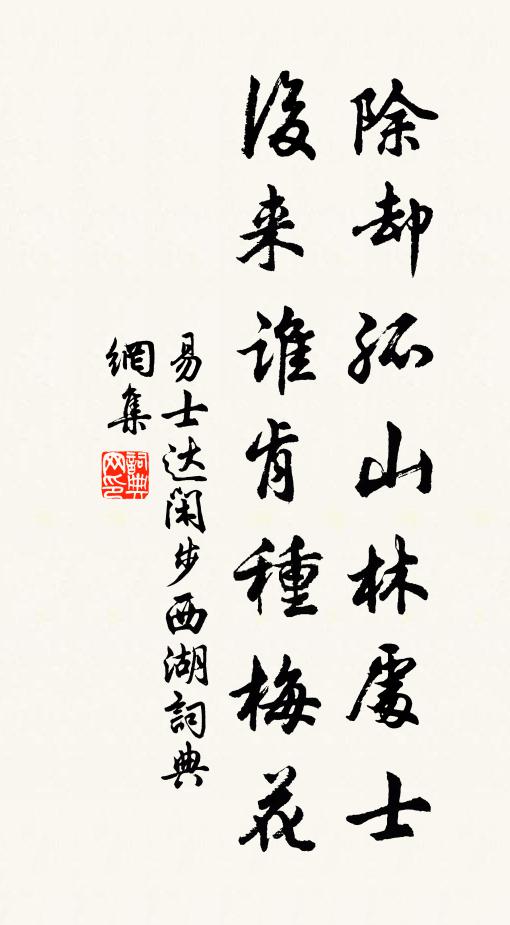 除却孤山林處士
後来谁肯種梅花
易士达闲步西湖詞典
網集
詞典
网印